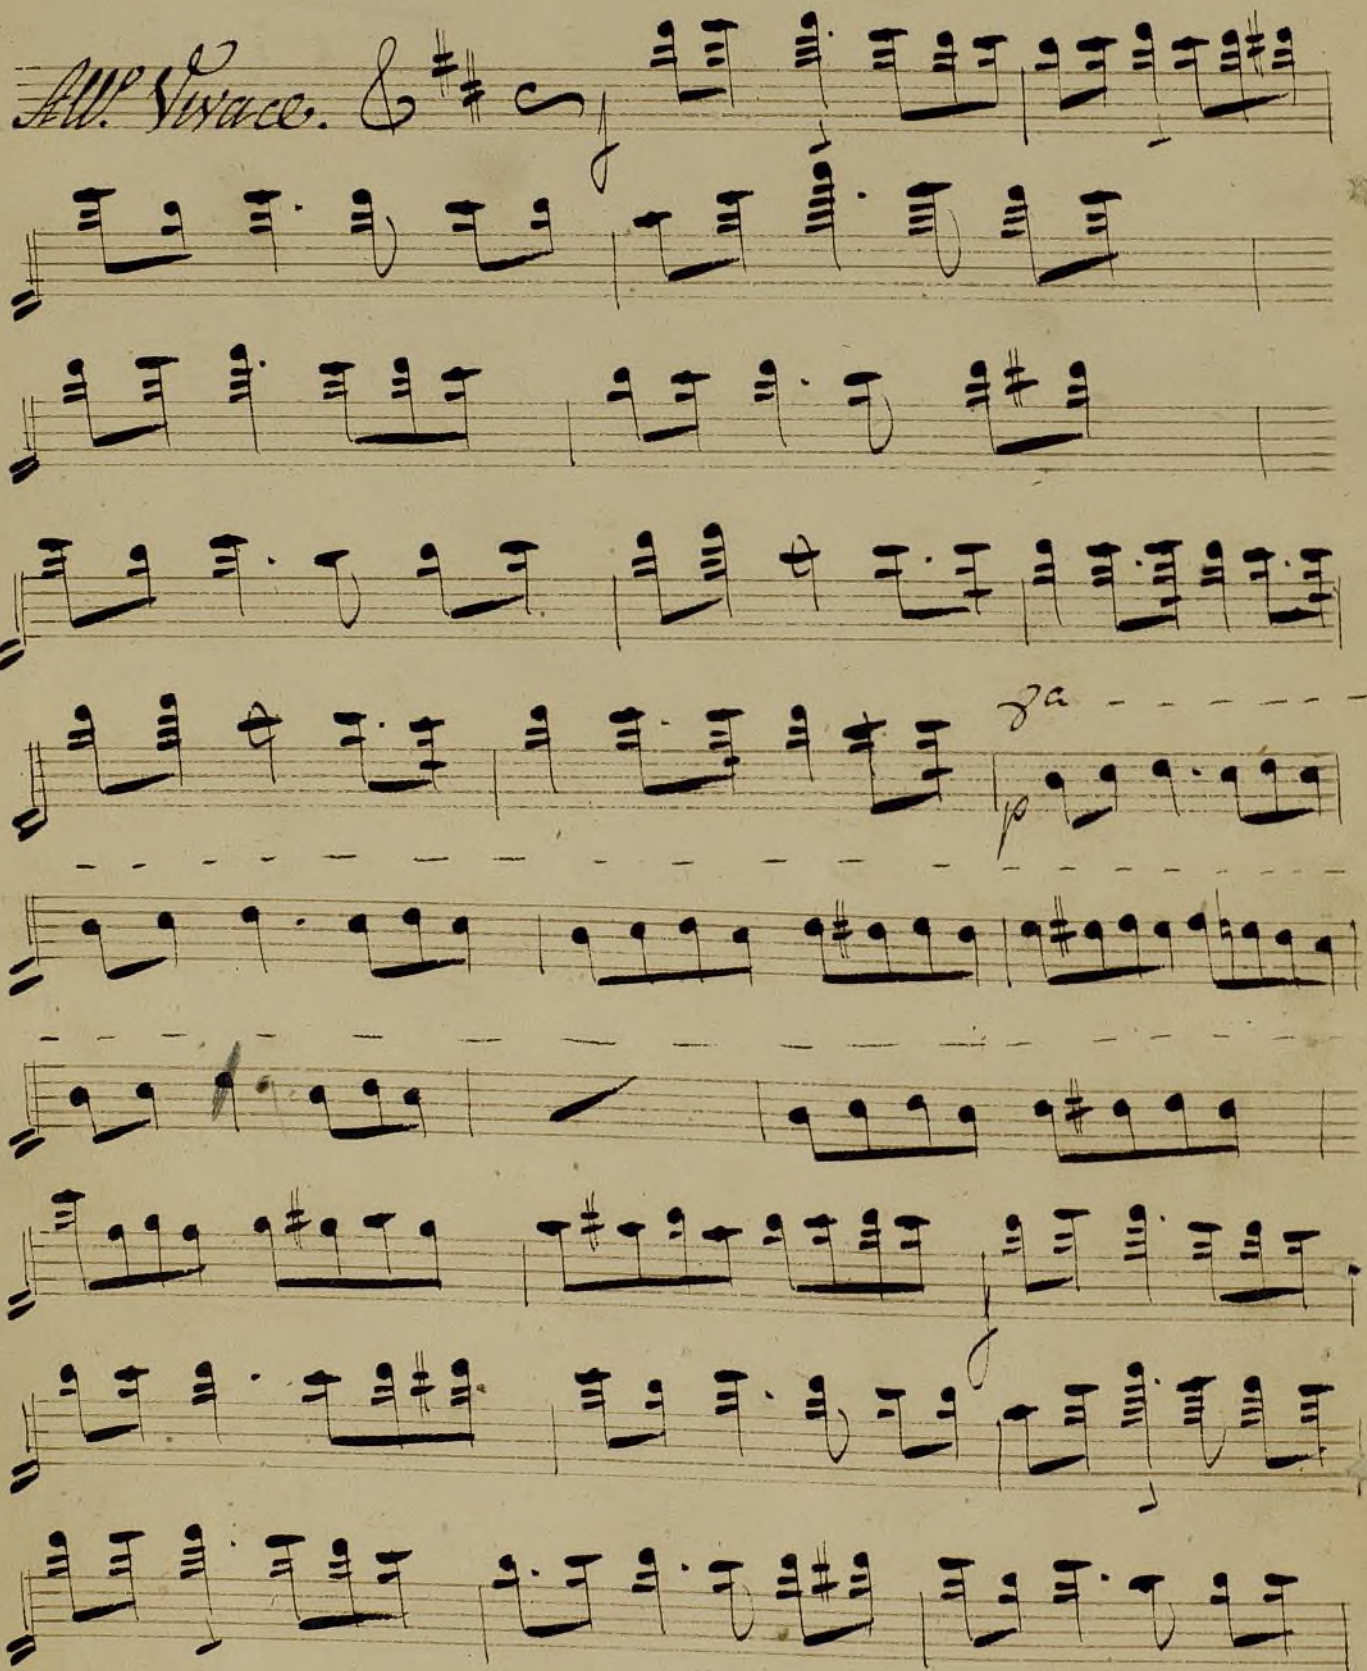 All.º Vivace.
f
8a
p
f